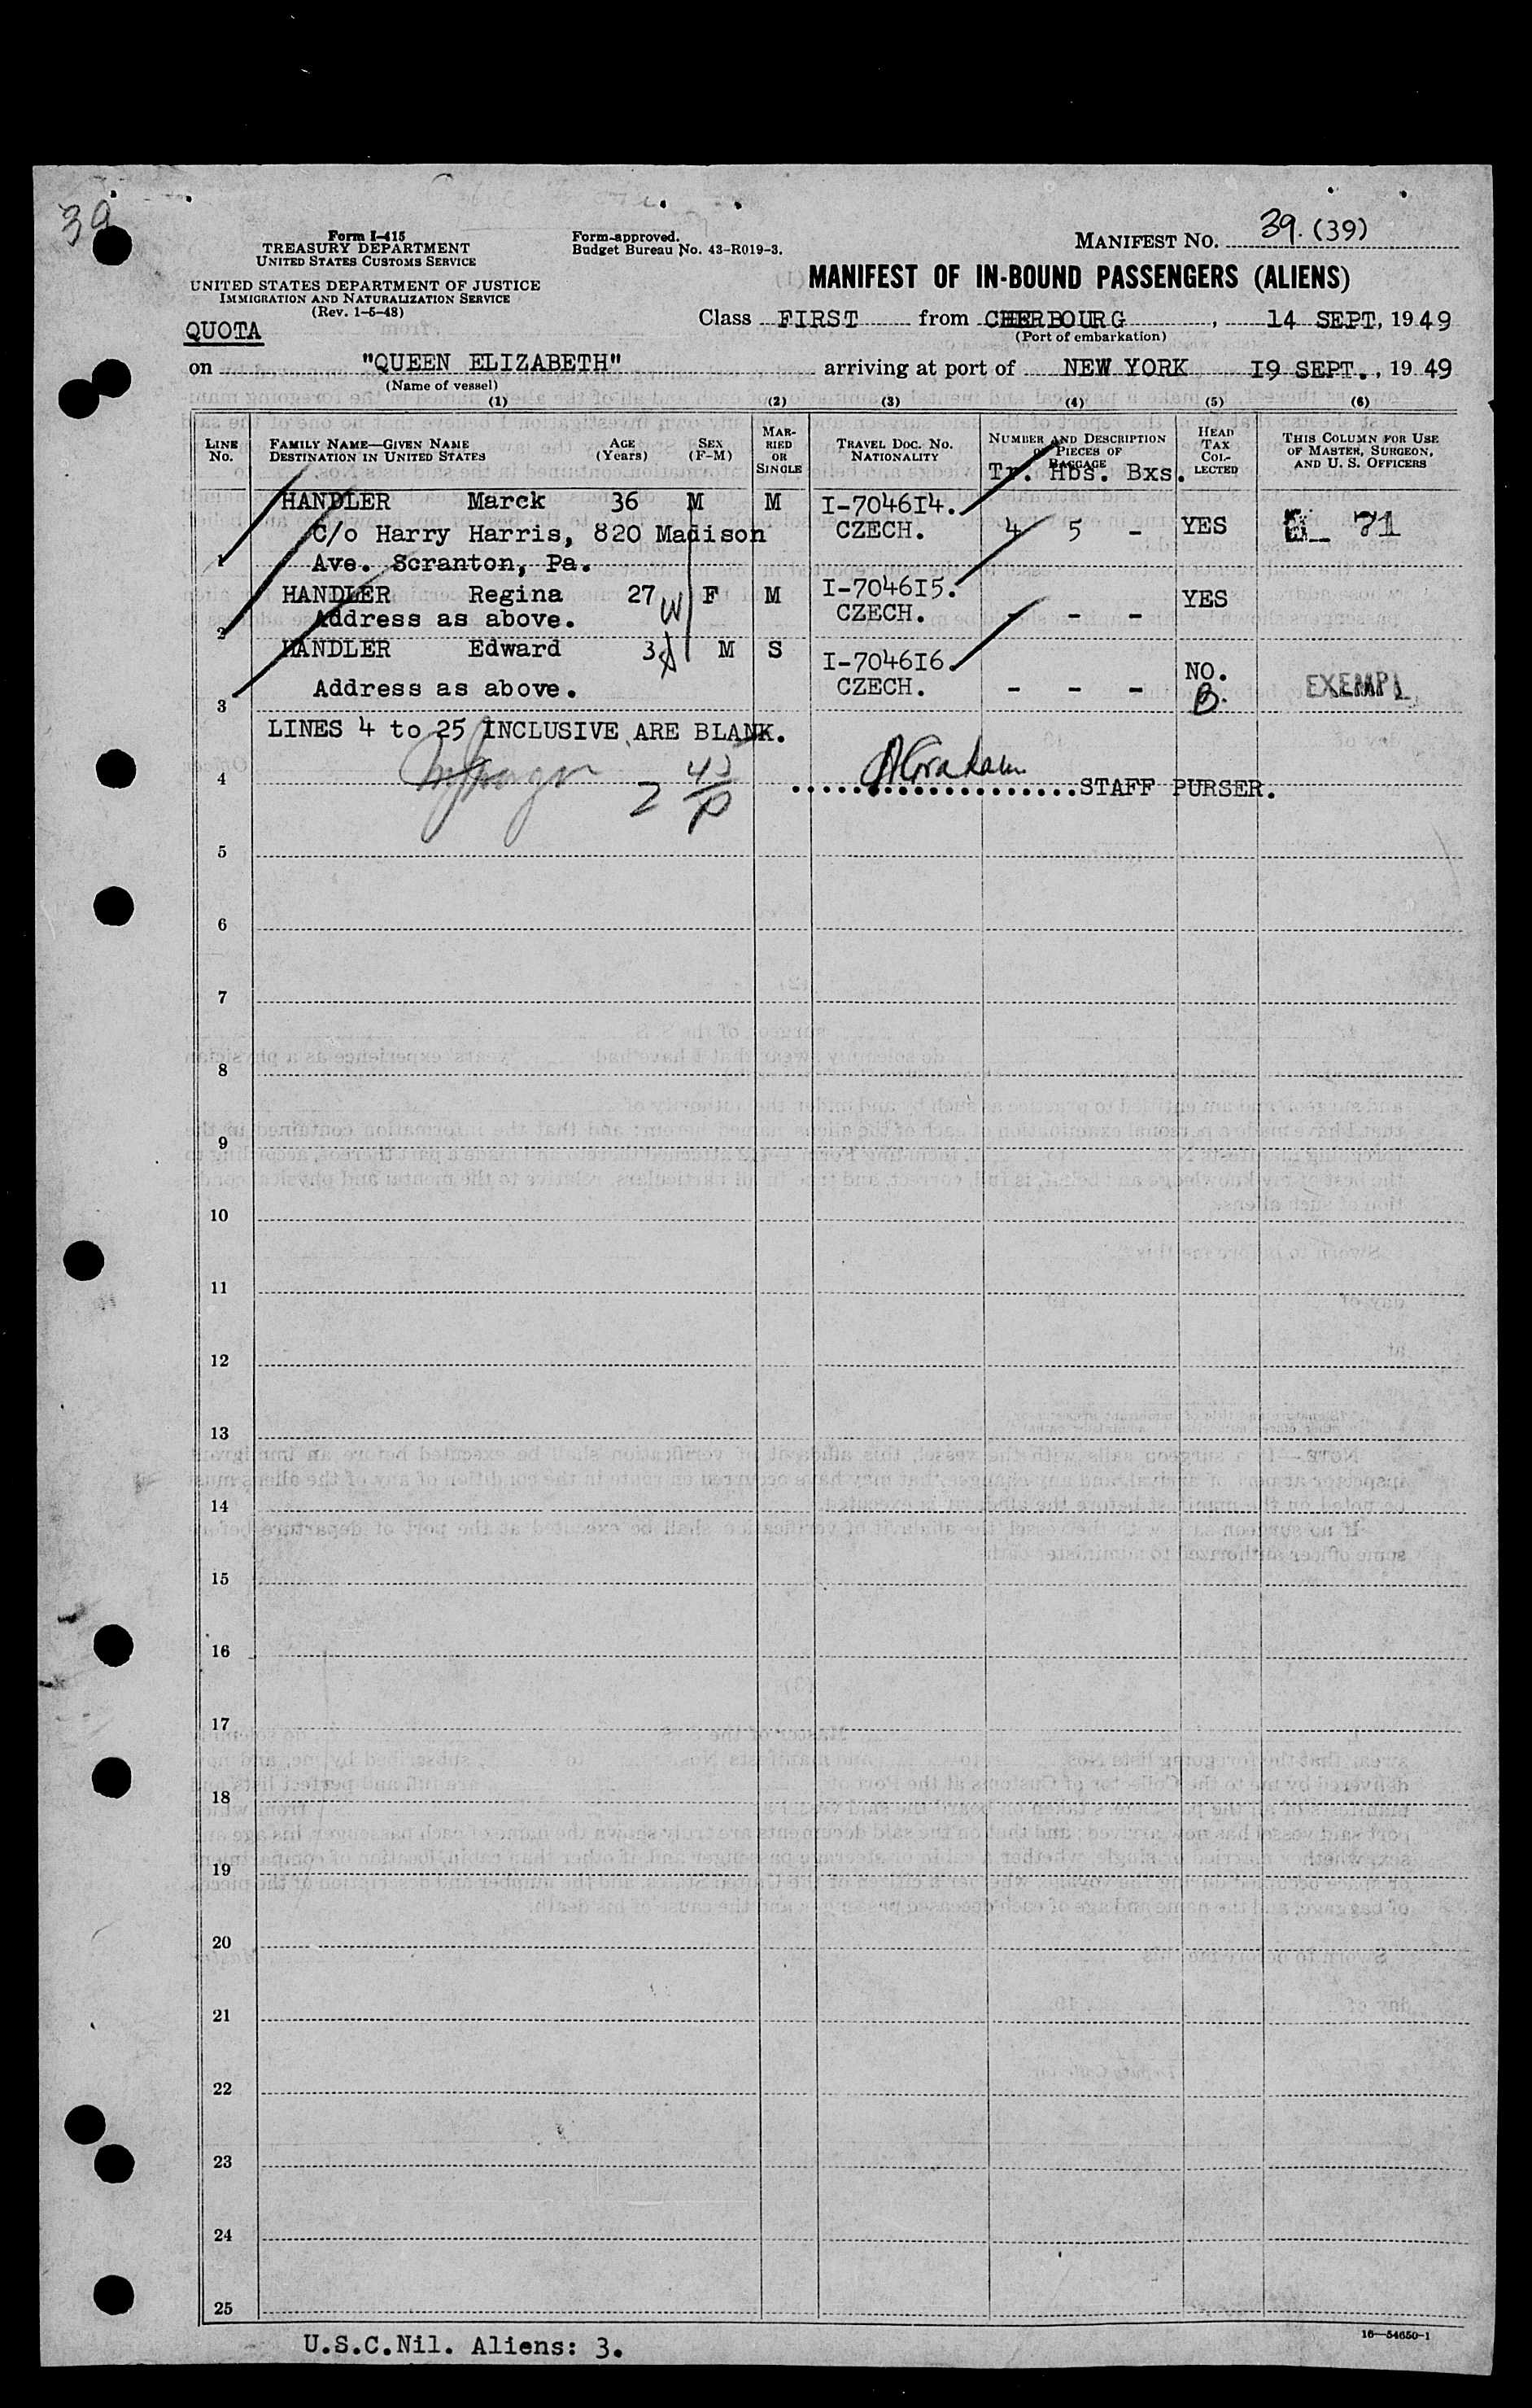 39
Form I-415
TREASURY DEPARTMENT
UNITED STATES CUSTOMS SERVICE
UNITED STATES DEPARTMENT OF JUSTICE
IMMIGRATION AND NATURALIZATION SERVICE
(Rev. 1-5-48)
Form approved.
Budget Bureau No. 43-R019-3.
MANIFEST NO. 39. (39)
MANIFEST OF IN-BOUND PASSENGERS (ALIENS)
QUOTA
Class FIRST from CHERBOURG, 14 SEPT, 1949
(Port of embarkation)
on "QUEEN ELIZABETH" arriving at port of NEW YORK 19 SEPT., 1949
(Name of vessel)
(1) (2) (3) (4) (5) (6)
LINE NO. FAMILY NAME—GIVEN NAME DESTINATION IN UNITED STATES AGE (Years) SEX (F-M) MARRIED OR SINGLE TRAVEL DOC. NO. NATIONALITY NUMBER AND DESCRIPTION OF PIECES OF BAGGAGE HEAD TAX COLLECTED THIS COLUMN FOR USE OF MASTER, SURGEON, AND U. S. OFFICERS
Tr. Hbs. Bxs.
HANDLER Marck 36 M M I-704614.
C/o Harry Harris, 820 Madison CZECH. 4 5 - YES 71
1 Ave. Scranton, Pa.
HANDLER Regina 27 W F M I-704615. YES
2 Address as above. CZECH. - - -
HANDLER Edward 3 M S I-704616. NO.
3 Address as above. CZECH. - - - B. EXEMPT
LINES 4 to 25 INCLUSIVE ARE BLANK.
4 2 ....................STAFF PURSER.
5
6
7
8
9
10
11
12
13
14
15
16
17
18
19
20
21
22
23
24
25
16—54650-1
U.S.C.Nil. Aliens: 3.